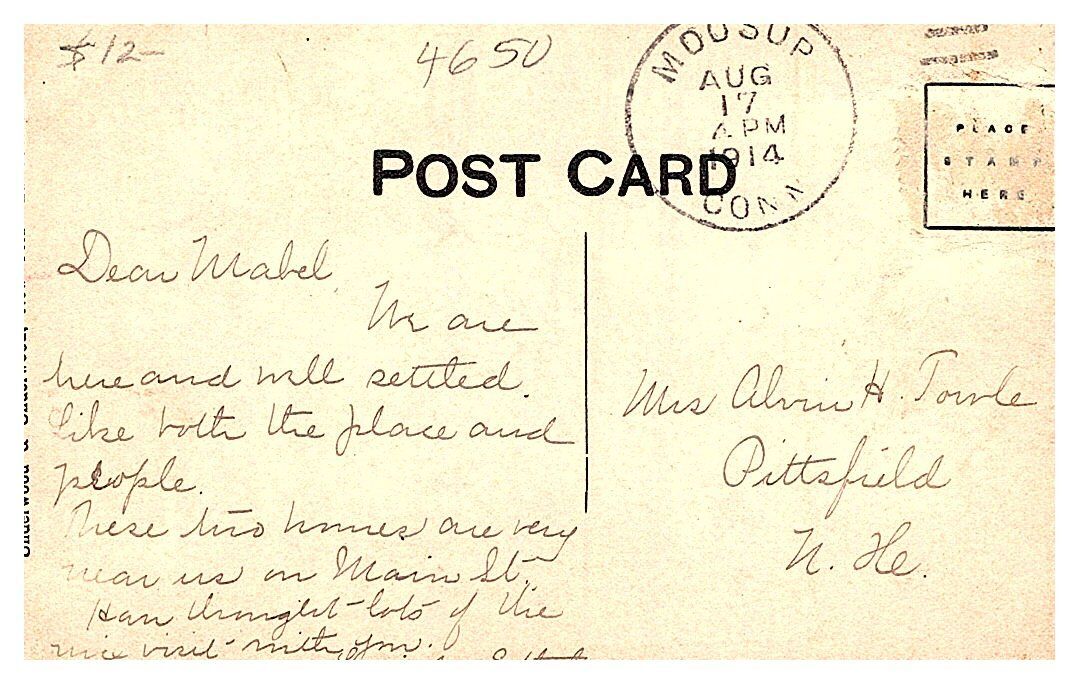 $12-
4650
MOOSUP
AUG
17
PM
1914
CONN
PLACE
STAMP
HERE
POST CARD
Dear Mabel,
We are
here and well settled.
Like both the place and
people.
These two homes are very
near us on Main St.
Have thought lots of the
nice visit with you.
Mrs Alvin H. Towle
Pittsfield
N. H.
Underwood & Underwood,